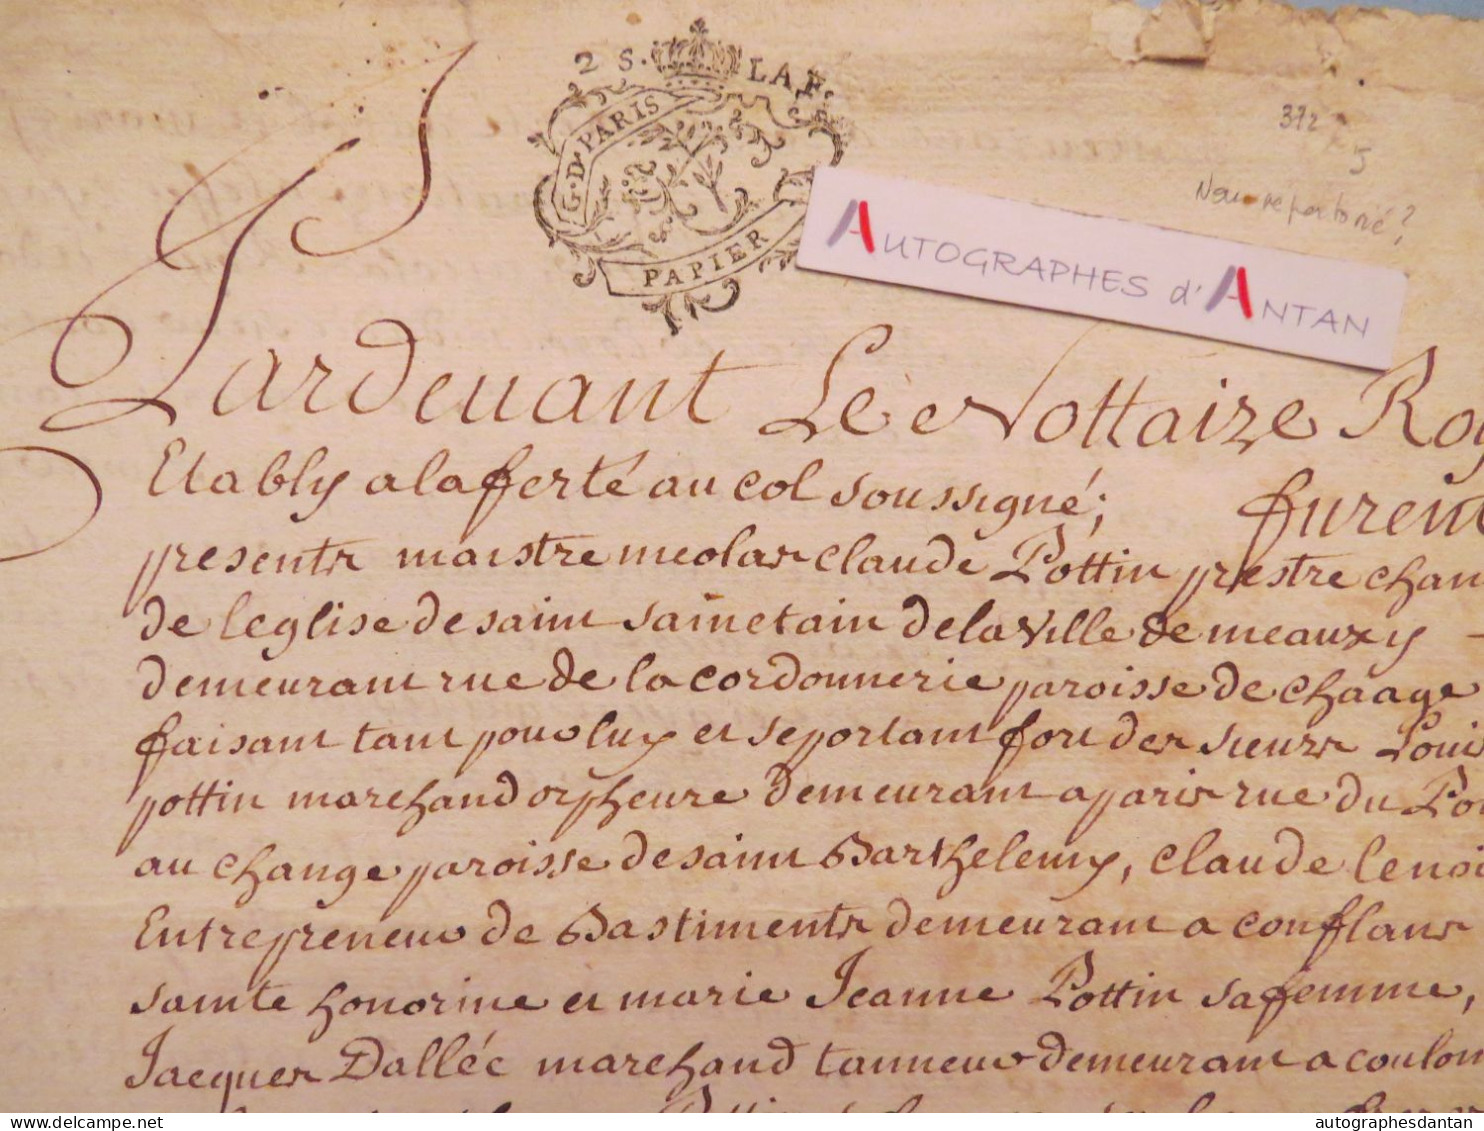 2 S. LA F.
G. DE PARIS
PAPIER
372
5
Non repertorié?
AUTOGRAPHES d'ANTAN
Pardeuant Le Nottaire Roy
Etably a la ferté au col soussigné; furent
presents maistre nicolas claude Pottin prestre chan
de leglise de saint sainctain de la Ville de meaux y
demeurant rue de la cordonnerie paroisse de chaage
faisant tant pour luy et se portant fort des sieurs Louis
pottin marchand orpheure demeurant a paris rue du Pon
au change paroisse de saint Barthelemy, claude lenoi
Entrepreneur de Bastiments demeurant a conflans
sainte honorine et marie Jeanne Pottin sa femme,
Jacques Dallée marchand tanneur demeurant a coulom
autographesdantan.com
autographesdantan